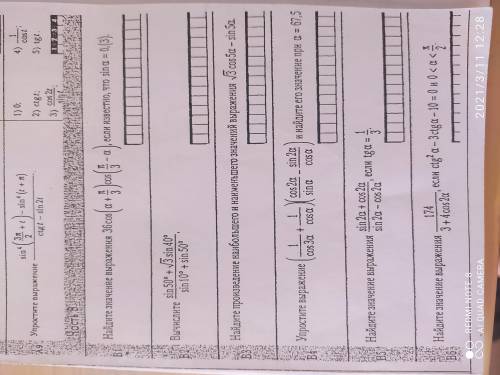 A9 Упростите выражение (sin⁴(3π/2 + t) − sin⁴(t + π)) / (ctg t − sin 2t)
1) 0;
2) ctg t;
3) cos 2t / sin t;
4) 1/cos t;
5) tg t.
Часть В
B1 Найдите значение выражения 36cos(α + π/3)cos(π/3 − α), если известно, что sin α = 0,(3).
B2 Вычислите (sin 50° + √3 sin 40°) / (sin 10° + sin 50°).
B3 Найдите произведение наибольшего и наименьшего значений выражения √3 cos 5α − sin 5α.
B4 Упростите выражение (1/cos 3α + 1/cos α)(cos 2α/sin α − sin 2α/cos α) и найдите его значение при α = 67,5
B5 Найдите значение выражения (sin 2α + cos 2α)/(sin 2α − cos 2α), если tg α = 1/3.
B6 Найдите значение выражения 174/(3 + 4cos 2α), если ctg² α − 3ctg α − 10 = 0 и 0 < α < π/2
REDMI NOTE 8
AI QUAD CAMERA
2021/3/11 12:28